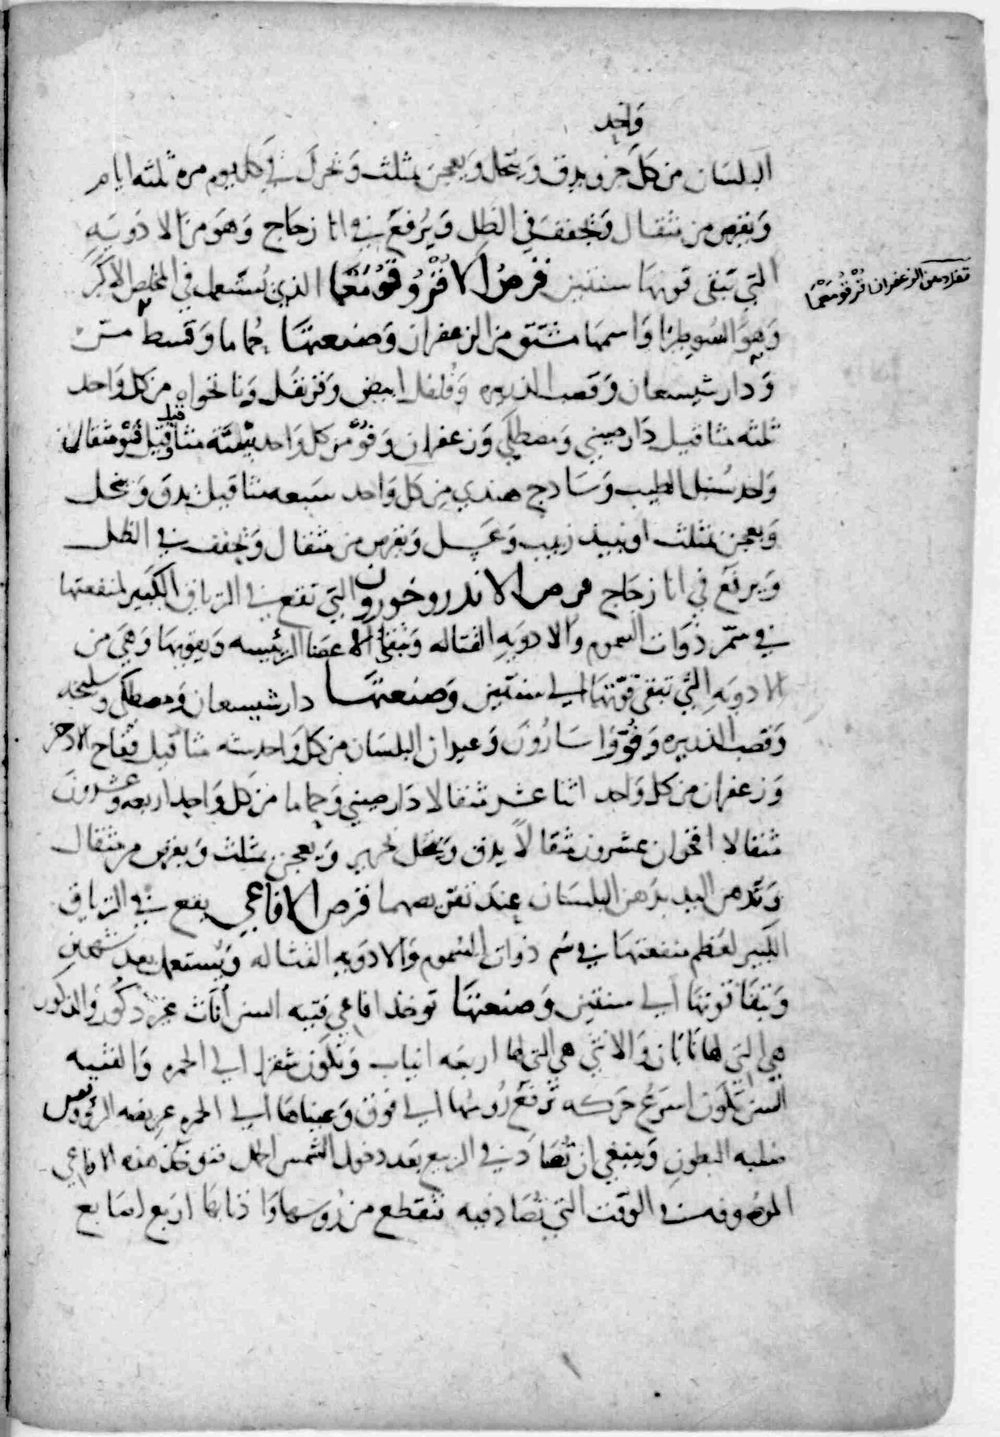 واحد
البلسان من كل جزو يدق وينخل ويعجن بمثلث وتحرك في كل يوم مره ثلثه ايام
ويقرص من مثقال وتجفف في الظل ويرفع في انا زجاج وهو من الادويه
التي تبقى قوتها سنتين قرص الاقروقومغما الذي يستعمل في المخلص الاكبر
تفلاد هن الزعفران اقروقومغما
وهو السوطيرا واسمها مشتق من الزعفران وصنعتها حماما وقسط مر
ودارشيسعان وقصب الذريره وفلفل ابيض وقرنفل ونانخواه من كل واحد
ثلثه مثاقيل دارصيني ومصطكي وزعفران وفو من كل واحد ستة مثاقيل مثقال
واحد سنبل الطيب وسادج هندي من كل واحد سبعه مثاقيل يدق وينخل
ويعجن بمثلث او نبيذ زبيب وعسل ويقرص من مثقال وتجفف في الظل
ويرفع في انا زجاج قرص الاندروخورون التي تقع في الترياق الكبير لمنفعتها
في سم ذوات السموم والادويه القتاله وتنقي الاعضا الرئيسه ويقويها وهي من
الادويه التي تبقى قوتها الي سنتين وصنعتها دارشيسعان ومصطكي وسليخه
وقصب الذريره وفو واسارون وعيدان البلسان من كل واحد سته مثاقيل فقاح الاذخر
وزعفران من كل واحد اثنا عشر مثقالا دارصيني وحماما من كل واحد اربعه وعشرون
مثقالا اقحوان عشرون مثقالا يدق وينخل بحرير ويعجن بمثلث ويقرص من مثقال
وتدهن اليد بدهن البلسان عند تقريصها قرص الافاعي يقع في الترياق
الكبير لعظم منفعتها في سم ذوات السموم والادويه القتاله ويستعمل بعد شهرين
وتبقا قوتها الي سنتين وصنعتها توخذ افاعي فتيه السن اناث غير ذكور والذكور
هي التي لها نابان والانثي هي التي لها اربعه انياب وتكون شقرا الي الحمره والفتيه
السن تكون اسرع حركه ترفع روسها الي فوق وعيناها الي الحمره عريضه الرووس
صلبه البطون وينبغي ان تصاد في الربيع بعد دخول الشمس الحمل فتوخذ هذه الافاعي
الموصوفه في الوقت التي تصاد فيه فتقطع من روسها واذنابها اربع اصابع